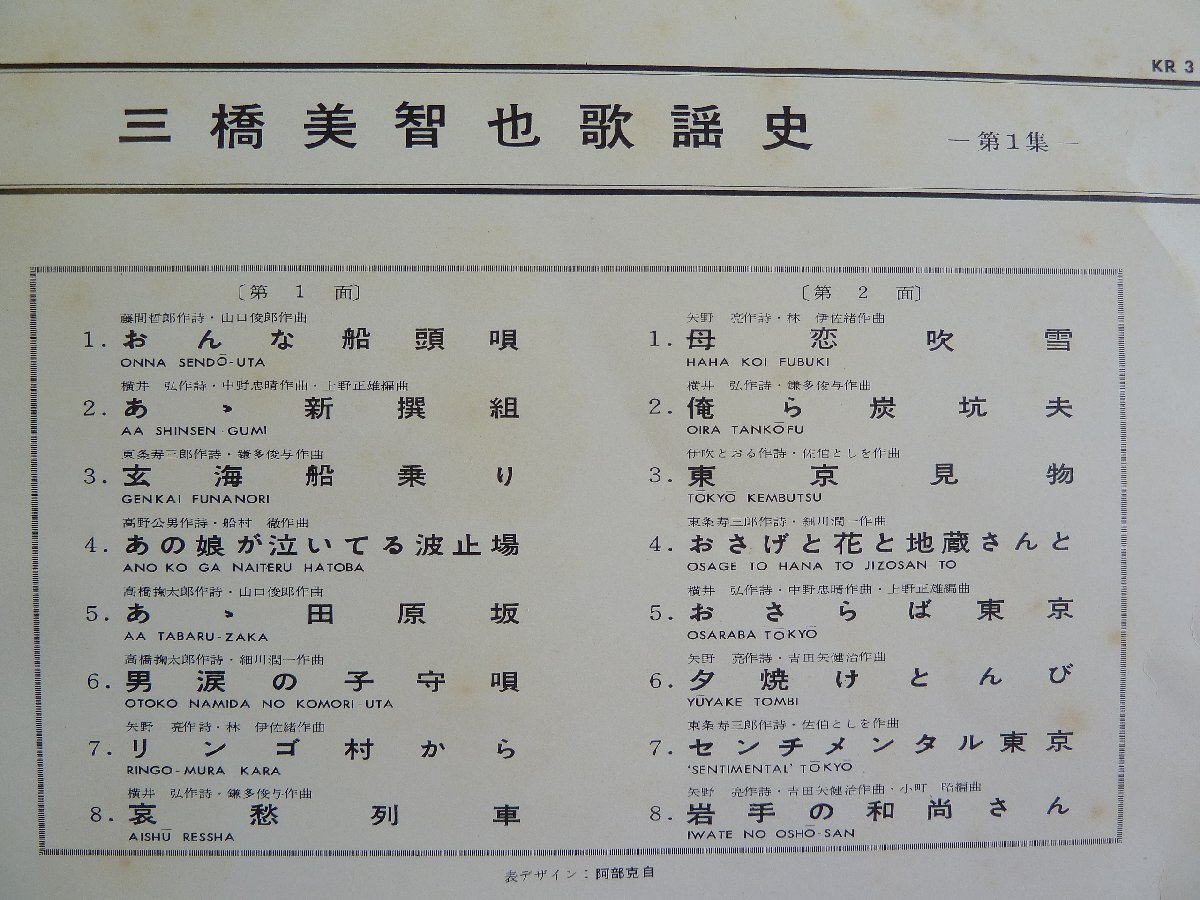 KR 3
三橋美智也歌謡史 ―第1集―
〔第1面〕
藤間哲郎作詩・山口俊郎作曲
1. おんな船頭唄
ONNA SENDŌ-UTA
横井 弘作詩・中野忠晴作曲・上野正雄編曲
2. あゝ新撰組
AA SHINSEN GUMI
東条寿三郎作詩・鎌多俊与作曲
3. 玄海船乗り
GENKAI FUNANORI
高野公男作詩・船村 徹作曲
4. あの娘が泣いてる波止場
ANO KO GA NAITERU HATOBA
高橋掬太郎作詩・山口俊郎作曲
5. あゝ田原坂
AA TABARU-ZAKA
高橋掬太郎作詩・細川潤一作曲
6. 男涙の子守唄
OTOKO NAMIDA NO KOMORI-UTA
矢野 亮作詩・林 伊佐緒作曲
7. リンゴ村から
RINGO-MURA KARA
横井 弘作詩・鎌多俊与作曲
8. 哀愁列車
AISHŪ RESSHA
〔第2面〕
矢野 亮作詩・林 伊佐緒作曲
1. 母恋吹雪
HAHA KOI FUBUKI
横井 弘作詩・鎌多俊与作曲
2. 俺ら炭坑夫
OIRA TANKŌFU
伊吹とおる作詩・佐伯としを作曲
3. 東京見物
TŌKYŌ KEMBUTSU
東条寿三郎作詩・細川潤一作曲
4. おさげと花と地蔵さんと
OSAGE TO HANA TO JIZOSAN TO
横井 弘作詩・中野忠晴作曲・上野正雄編曲
5. おさらば東京
OSARABA TOKYŌ
矢野 亮作詩・吉田矢健治作曲
6. 夕焼けとんび
YŪYAKE TOMBI
東条寿三郎作詩・佐伯としを作曲
7. センチメンタル東京
'SENTIMENTAL' TŌKYŌ
矢野 亮作詩・吉田矢健治作曲・小町 昭編曲
8. 岩手の和尚さん
IWATE NO OSHŌ-SAN
表デザイン：阿部克自